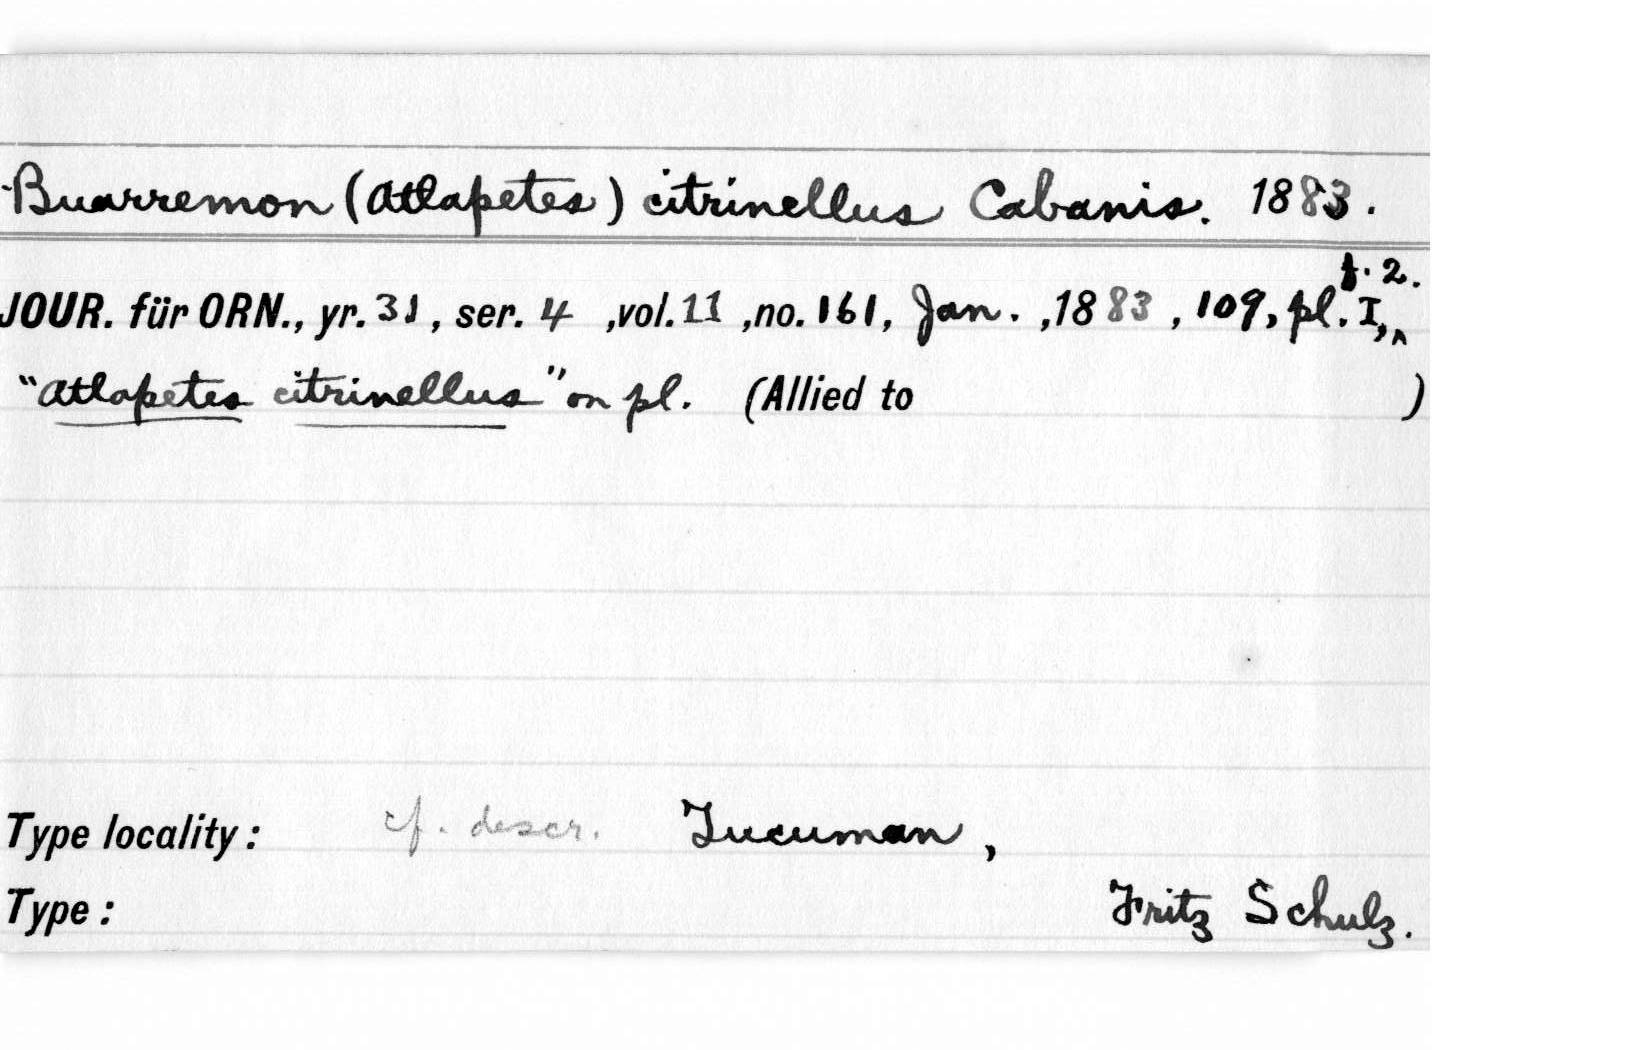 Buarremon (Atlapetes) citrinellus Cabanis. 1883.
JOUR. für ORN., yr. 31, ser. 4 ,vol. 11 ,no. 161, Jan. ,1883 , 109, pl. I,^ f. 2.
"Atlapetes citrinellus" on pl. (Allied to )
Type locality: cf. descr. Tucuman,
Type: Fritz Schulz.